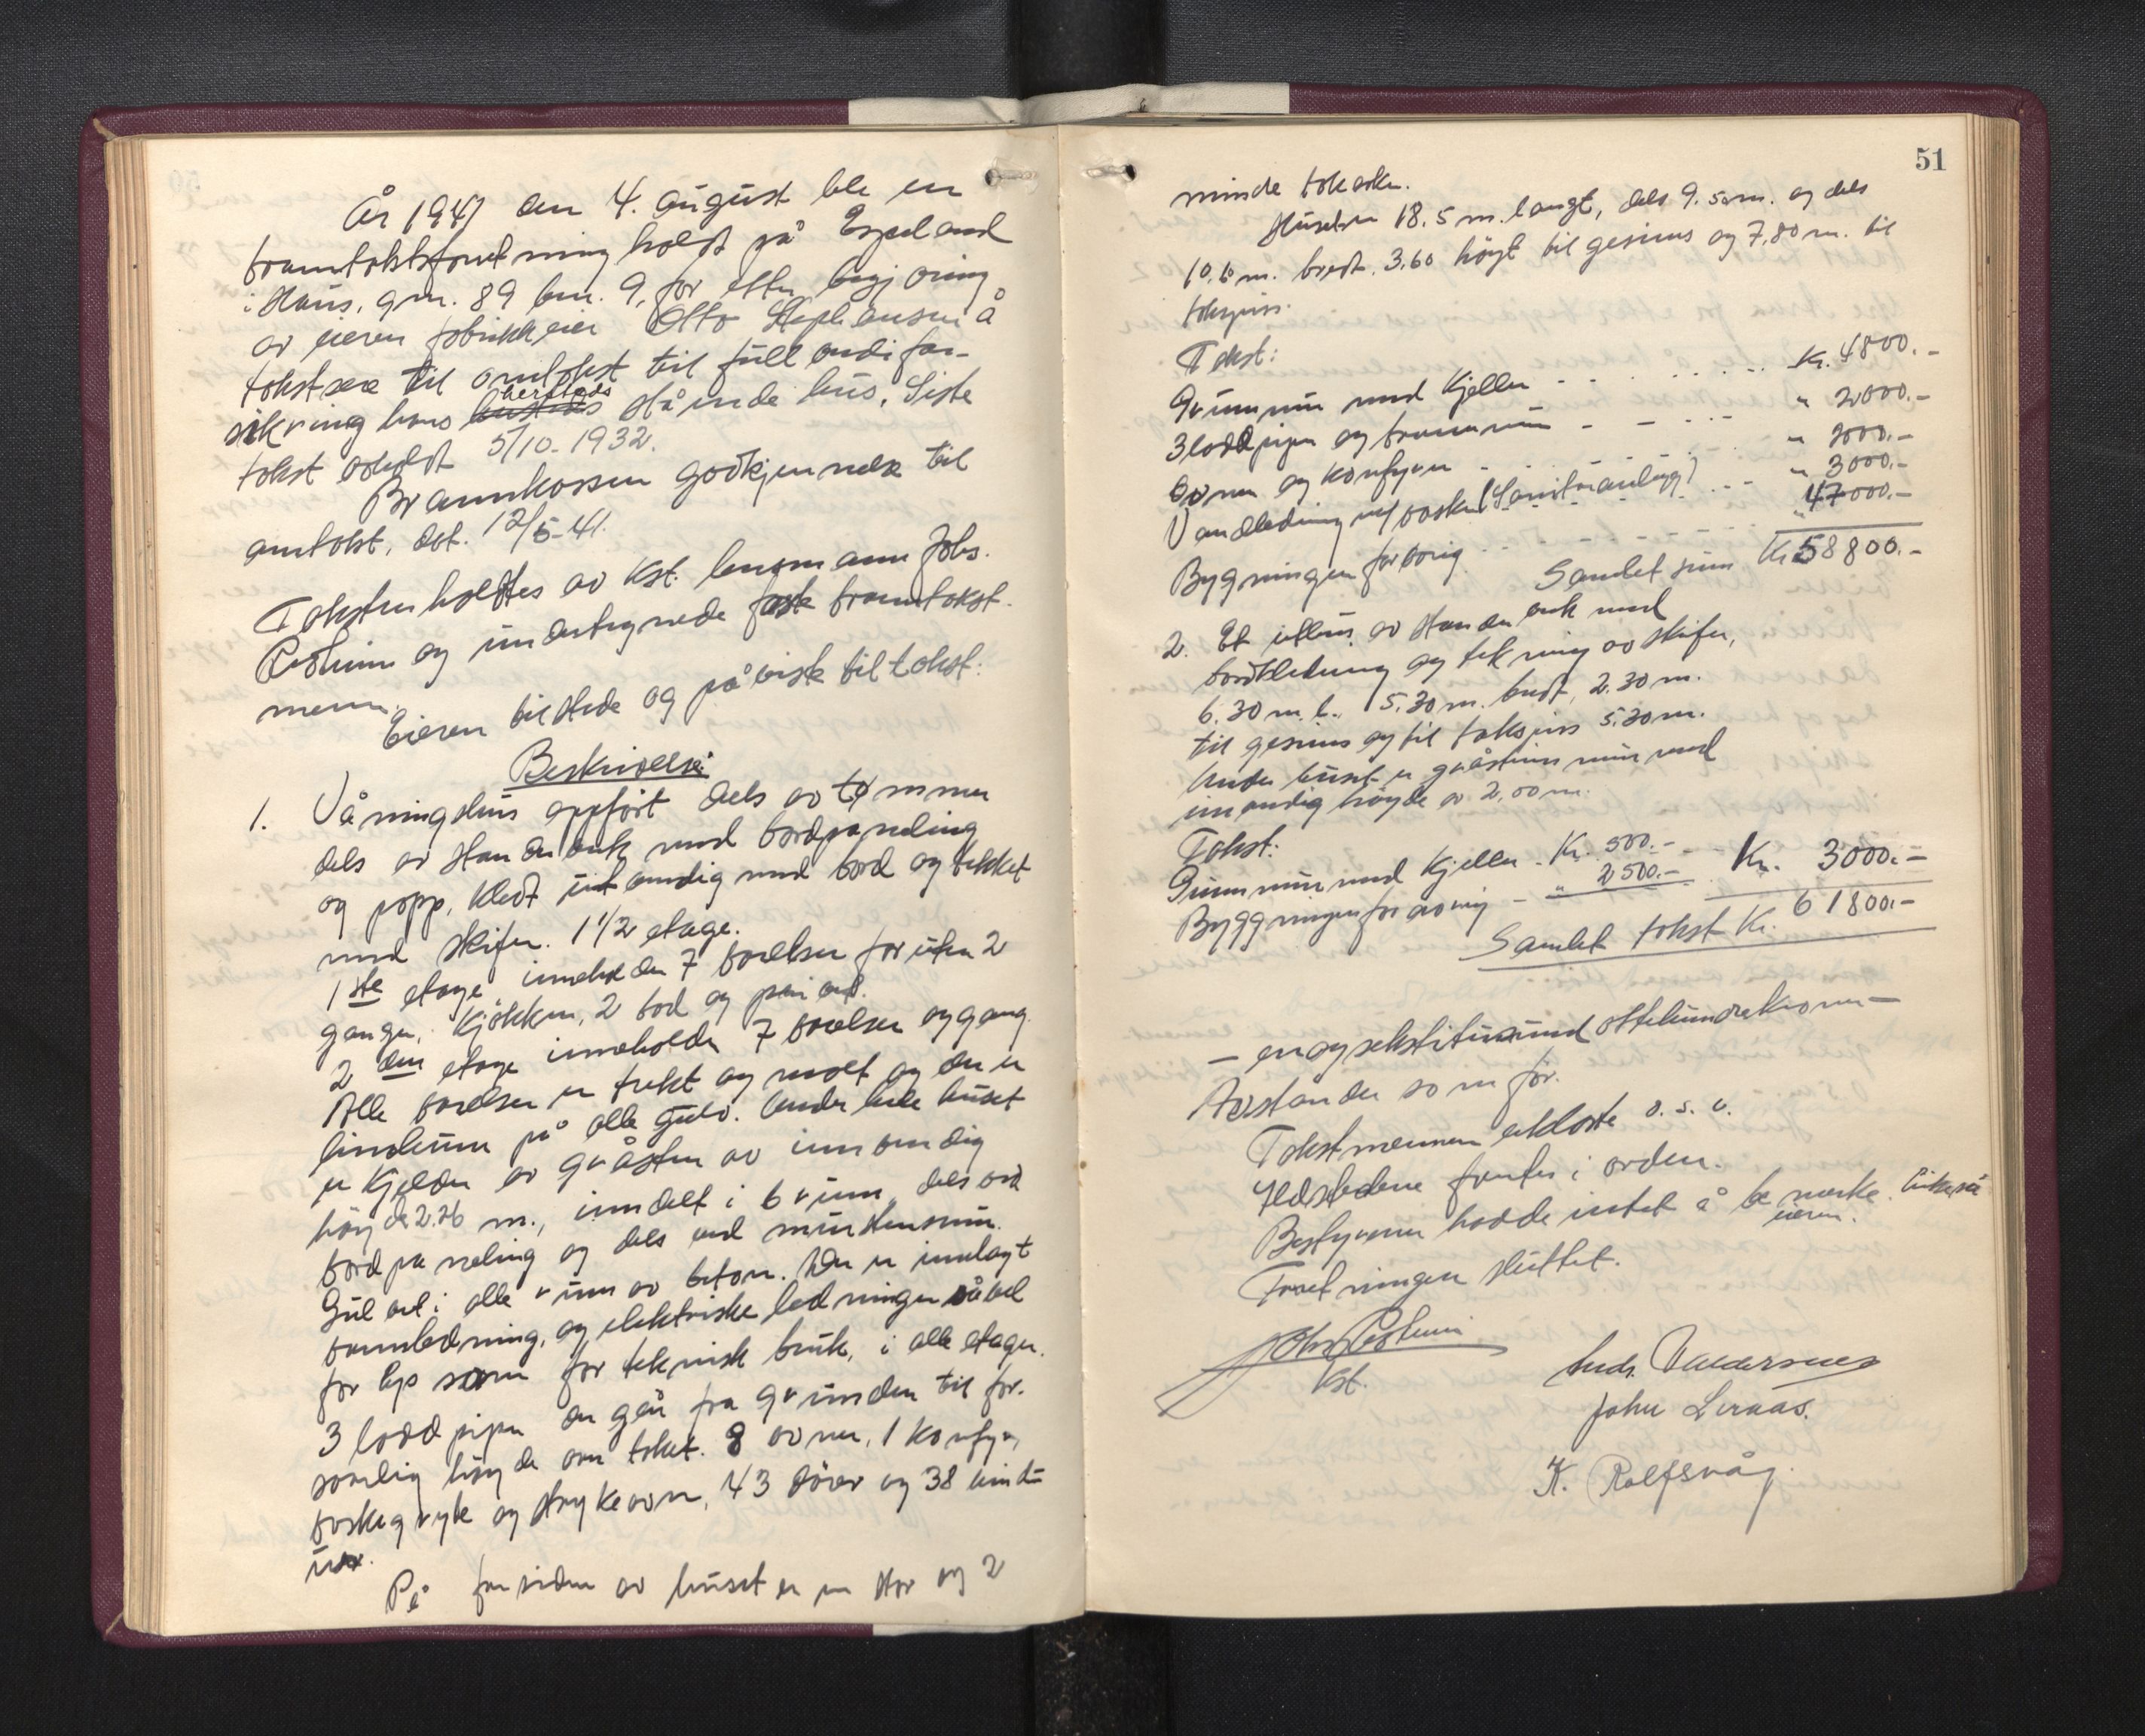 År 1941 den 4. august ble en
branntakstforretning holdt på Espeland
i Haus, gnr. 89 bnr. 9, for etter begjæring
av eieren fabrikkeier Otto Stephansen å
takstere til omtakst til full verdi for-
sikring hans herstads stående hus. Siste
takst avholdt 5/10-1932.
Brannkassen godkjennelse til
omtakst, dat. 12/5-41.
Taksten holdtes av kst. lensmann Johs.
Redheim og undertegnede faste branntakst-
menn.
Eieren tilstede og påviste til takst:
Beskrivelse:
1. Våningshus oppført dels av tømmer
dels av standerverk med bordpaneling
og papp, kledt utvendig med bord og tekket
med skifer. 1 1/2 etage.
1ste etage inneholder 7 værelser foruten 2
ganger, kjøkken, 2 bod og
2den etage inneholder 7 værelser og gang.
Alle værelser er trekt og malt og der er
linoleum på alle gulv. Under hele huset
er kjeller av gråsten av innvendig
høyde 2.26 m., inndelt i 6 rum dels ved
bordpaneling og dels ved murstensmur.
Gulvet i alle rum av beton. Der er innlagt
vannledning, og elektriske ledninger såvel
for lys som for teknisk bruk, i alle etager.
3 lodd piper der går fra grunden til for-
svarlig høyde over taket. 8 ovner, 1 komfyr,
vaskegryte og strykeovn, 43 dører og 38 vindu-
uer.
På forsiden av huset er en stor og 2
51
mindre takarker.
Huset er 18.5 m. langt, dels 9.50 m. og dels
10.60 m. bredt. 3.60 høyt til gesims og 7.80 m. til
takspiss.
Takst:
Grunnmur med kjeller - - - - - - - Kr. 4800.-
3 loddpiper og brannmur - - - - - " 2000.-
Ovner og komfyrer - - - " 2000.-
Vandledning m/ vaske (Sanitæranlegg) - - - " 3000.-
Bygningen forøvrig - - - - - - - " 47000.-
Samlet sum Kr 58800.-
2. Et uthus av standerverk med
bordkledning og tekning av skifer,
6.30 m. l. 5.30 m. bredt, 2.30 m.
til gesims og til takspiss 5.30 m.
Under huset er gråstens mur med
innvendig høyde av 2,00 m.
Takst:
Grunnmur med kjeller - Kr. 500.- - -
Byggningen forøvrig - " 2500.- Kr. 3000.-
Samlet takst Kr. 61800.-
- enogsekstitusund ottehundrekroner -
Avstander som før.
Takstmennene erklærte o.s.v.
Ildstedene fantes i orden.
Bestyreren hadde intet å bemerke. Likeså
eieren.
Forretningen sluttet.
Johs Redheim
kst.
Ands. Valdersnes
John Liraas.
K. Rolfsvåg.